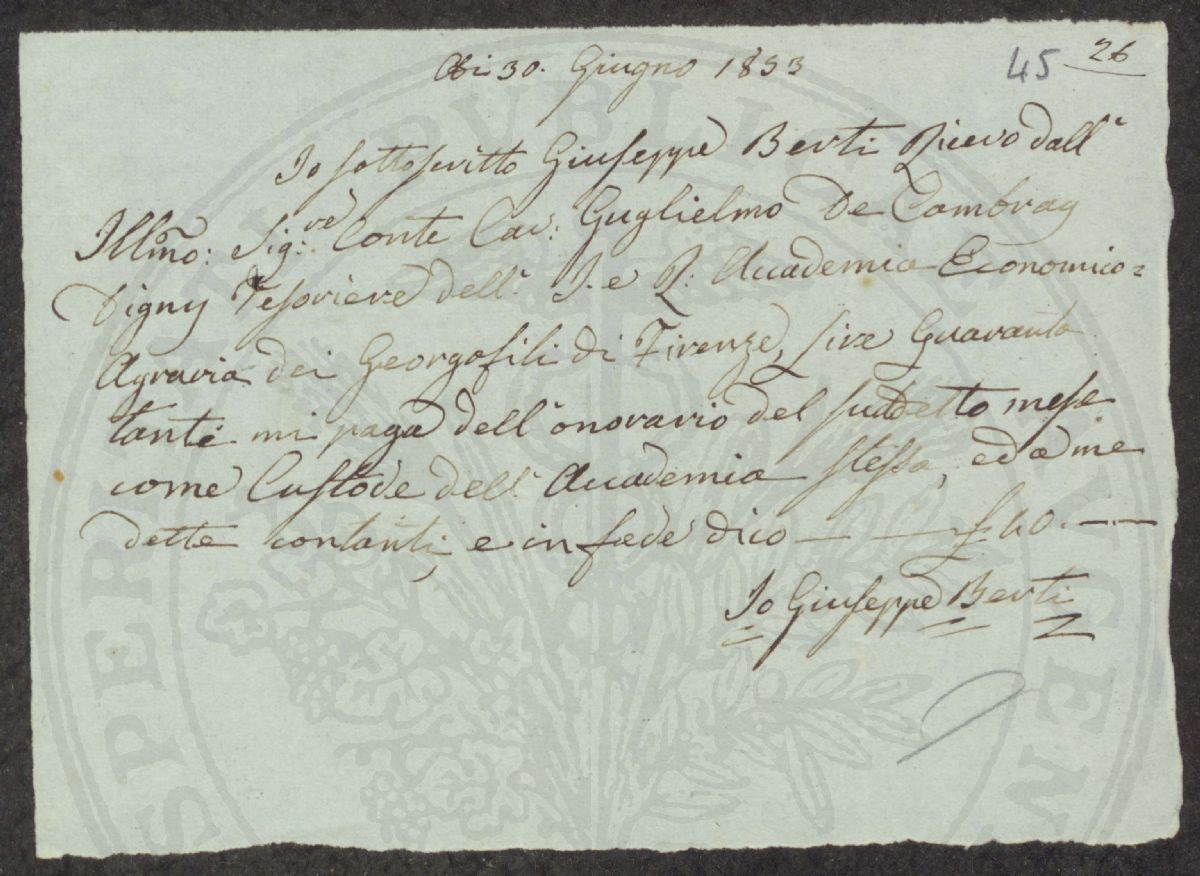 45 26
Adi 30. Giugno 1853
Io sottoscritto Giuseppe Berti Ricevo dall'
Illmo: Sig.re Conte Cav: Guglielmo De Cambray
Digny Tesoriere dell' I. e R. Accademia Economico=
Agraria dei Georgofili di Firenze, Lire Quaranta
tante mi paga dell'onorario del suddetto mese
come Custode dell' Accademia stessa, ed a me
dette contanti, e in fede dico — — £ 40. — —
Io Giuseppe Berti